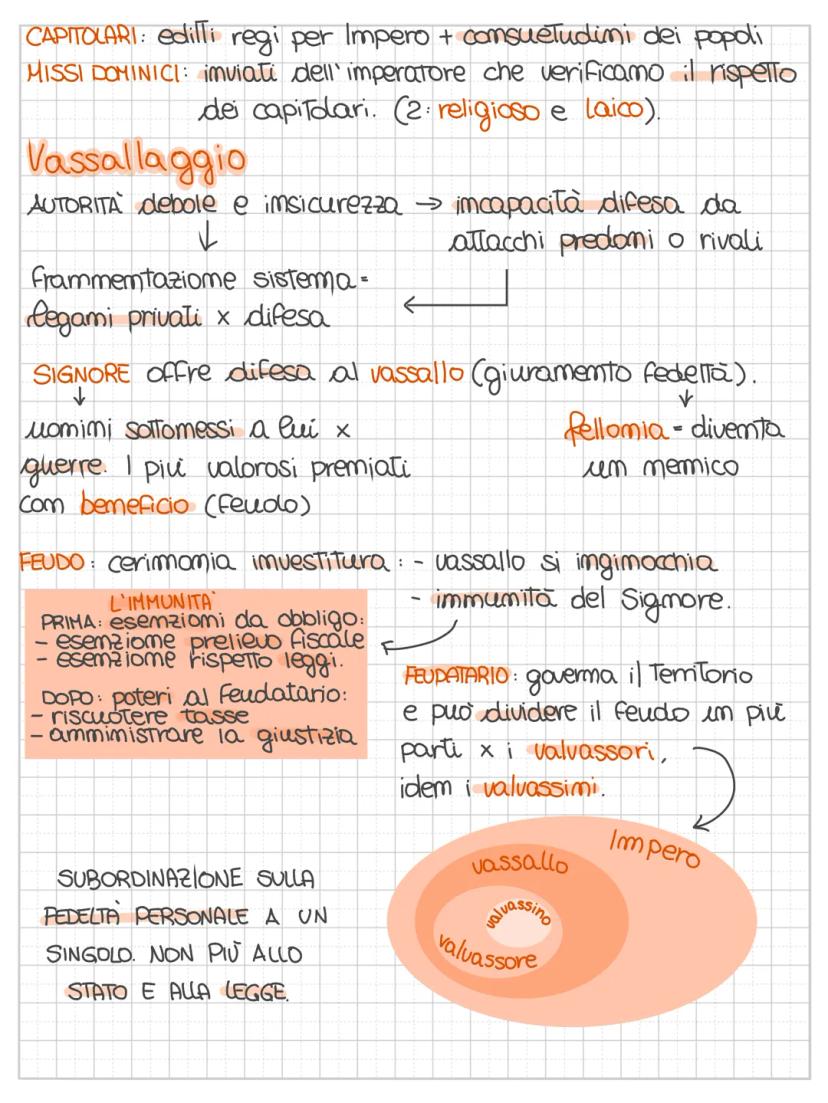 CAPITOLARI: editti regi per Impero + consuetudini dei popoli
MISSI DOMINICI: inviati dell'imperatore che verificano il rispetto
dei capitolari. (2: religioso e laico).
Vassallaggio
AUTORITÀ debole e insicurezza → incapacità difesa da
↓ attacchi predoni o rivali
frammentazione sistema =
legami privati x difesa
SIGNORE offre difesa al vassallo (giuramento fedeltà).
↓ ↓
uomini sottomessi a lui x
guerre. I più valorosi premiati
con beneficio (feudo)
fellonia = diventa
un nemico
FEUDO: cerimonia investitura: - vassallo si inginocchia
- immunità del Signore.
L'IMMUNITA'
PRIMA: esenzioni da obbligo:
- esenzione prelievo fiscale
- esenzione rispetto leggi.
DOPO: poteri al feudatario:
- riscuotere tasse
- amministrare la giustizia
FEUDATARIO: governa il Territorio
e può dividere il feudo in più
parti x i valvassori,
idem i valvassini.
Impero
vassallo
valvassino
valvassore
SUBORDINAZIONE SULLA
FEDELTÀ PERSONALE A UN
SINGOLO. NON PIÙ ALLO
STATO E ALLA LEGGE.